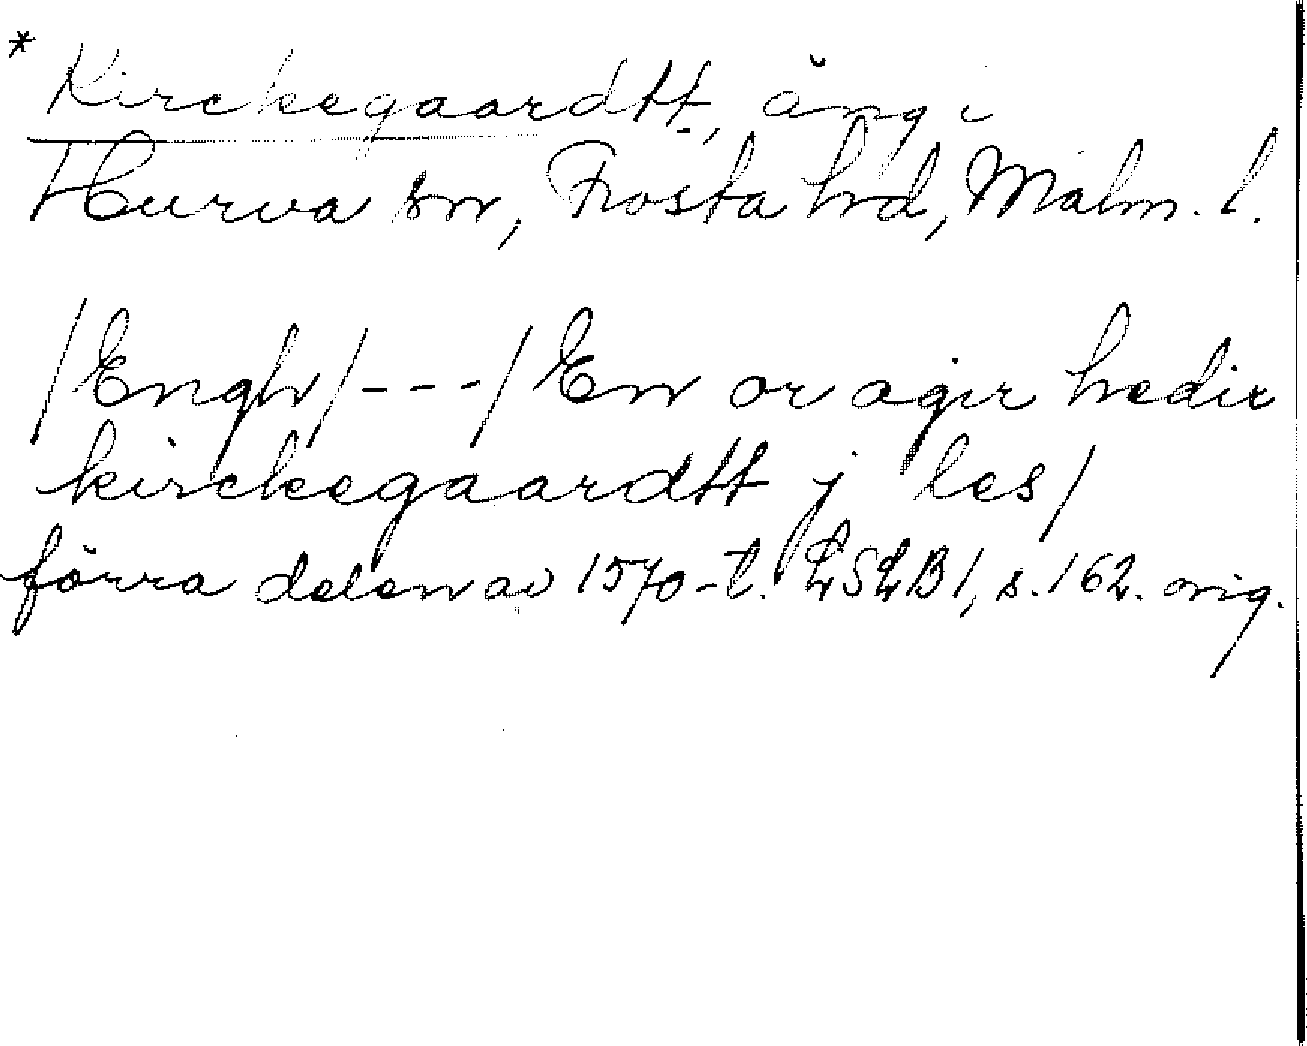 * Kirckegaardtt, äng i
Hurva sn, Frosta hd, Malm. l.
/Engh/---/ En or ager hedir
kirckegaardtt j les/
förra delen av 1570-t. LSLB 1, s. 162. orig.